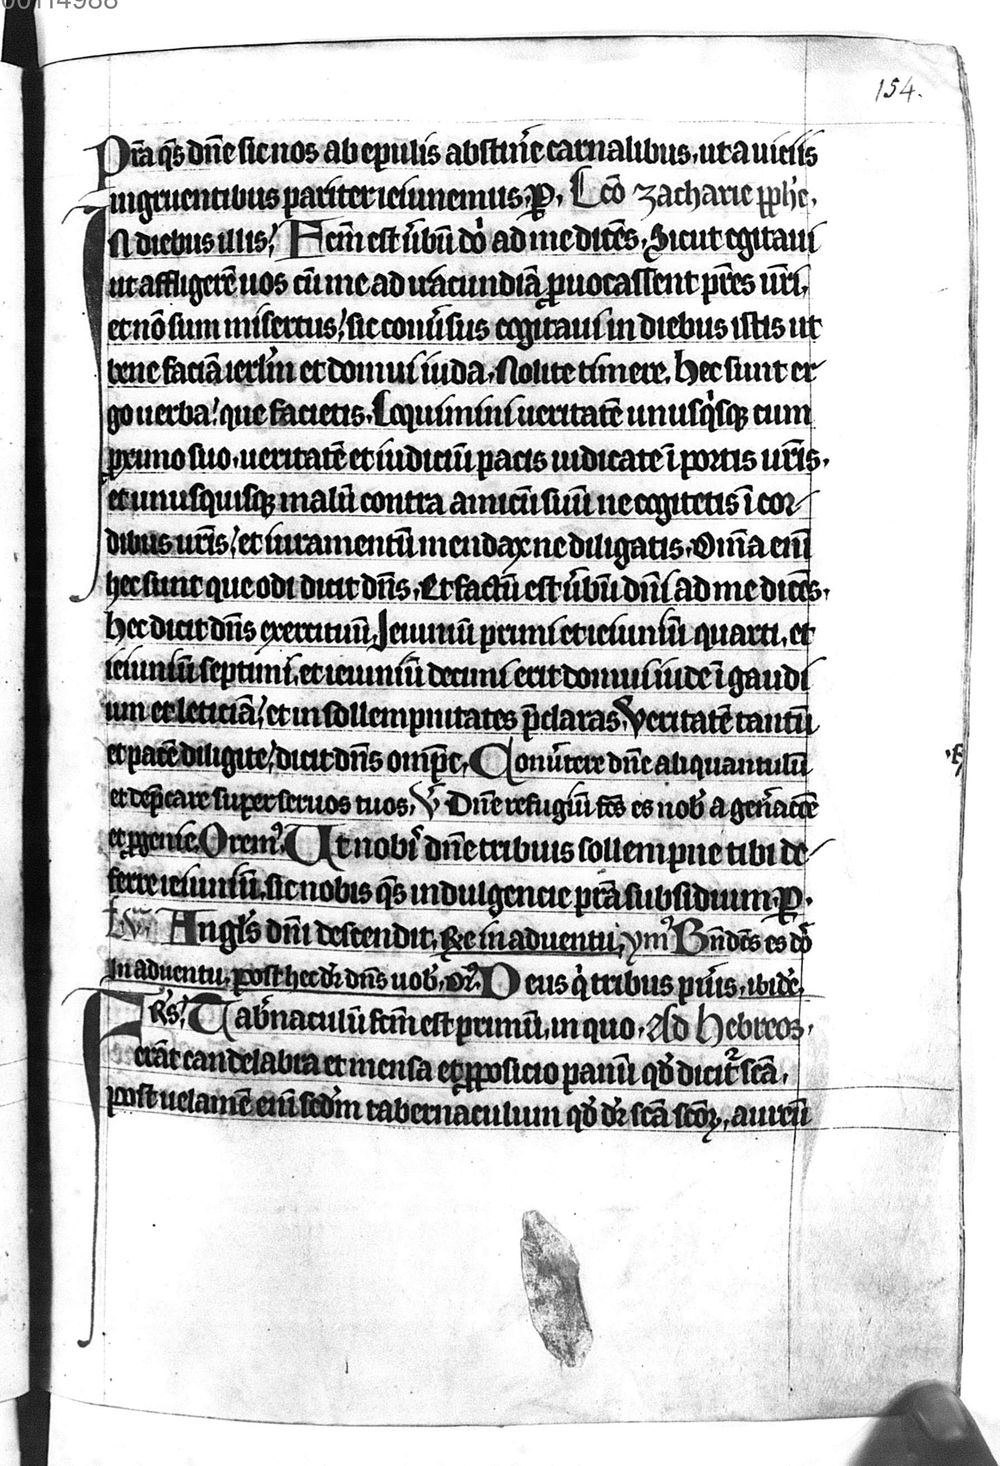 00114988
154.
Pr̄a q̄s dn̄e sic nos ab epulis abstin̄e carnalibus, ut a uiciis
irruentibus pariter ieiunemus. p̄. Lc̄o zacharie ꝓph̄e.
In diebus illis; Fc̄m est u̓bū dn̄i ad me dicēs. Sicut cogitaui
ut affligerē uos cū me ad iracundiā ꝓuocassent pr̄es ur̄i,
et nō sum misertus; sic conu̓sus cogitaui in diebus istis ut
bene faciā ierlm̄ et domui iuda. Nolite timere. Hec sunt er
go uerba; que facietis. Loquimini ueritatē unusq̓sqꝫ cum
ꝓximo suo. ueritatē et iudiciū pacis iudicate ī portis ur̄is.
et unusquisqꝫ malū contra amicū suū ne cogitetis ī cor
dibus ur̄is; et iuramentū mendax ne diligatis. Om̄ia eni̅
hec sunt que odi dicit dn̄s. Et factū est u̓bū dn̄i ad me dicēs.
hec dicit dn̄s exercituū. Ieiuniū primi et ieiuniū quarti, et
ieiuniū septimi, et ieiuniū decimi erit domui iude ī gaudi
um et leticiā; et in sollempnitates p̄claras. Veritatē tantū
et pacē diligite; dicit dn̄s omp̄c. Conu̓tere dn̄e aliquantulū
et dep̄care super seruos tuos. V̄ Dn̄e refugiū fc̄s es nob̄ a gen̓acōe
et ꝓgenie. Orem᷒. Ut nobis dn̄e tribuis sollempne tibi de
ferre ieiuniū. sic nobis q̄s indulgencie pr̄a subsidium. P̄.
Angl̄s dn̄i descendit. Re in aduentu. ym᷒ Bn̄dc̄s es dn̄e
In aduentu. post hec dr̄ dn̄s uob̄. or᷒. Deus q̓ tribus pu̓is. ibidē.
Frs̄; Tab̓naculū fc̄m est primū, in quo. Ad Hebreos.
erāt candelabra et mensa et ꝓposicio panū qd̄ dicit᷒ sc̄a.
post uelamē eni̅ scd̄m tabernaculum qd̄ dr̄ sc̄a sc̄oꝝ, aureū